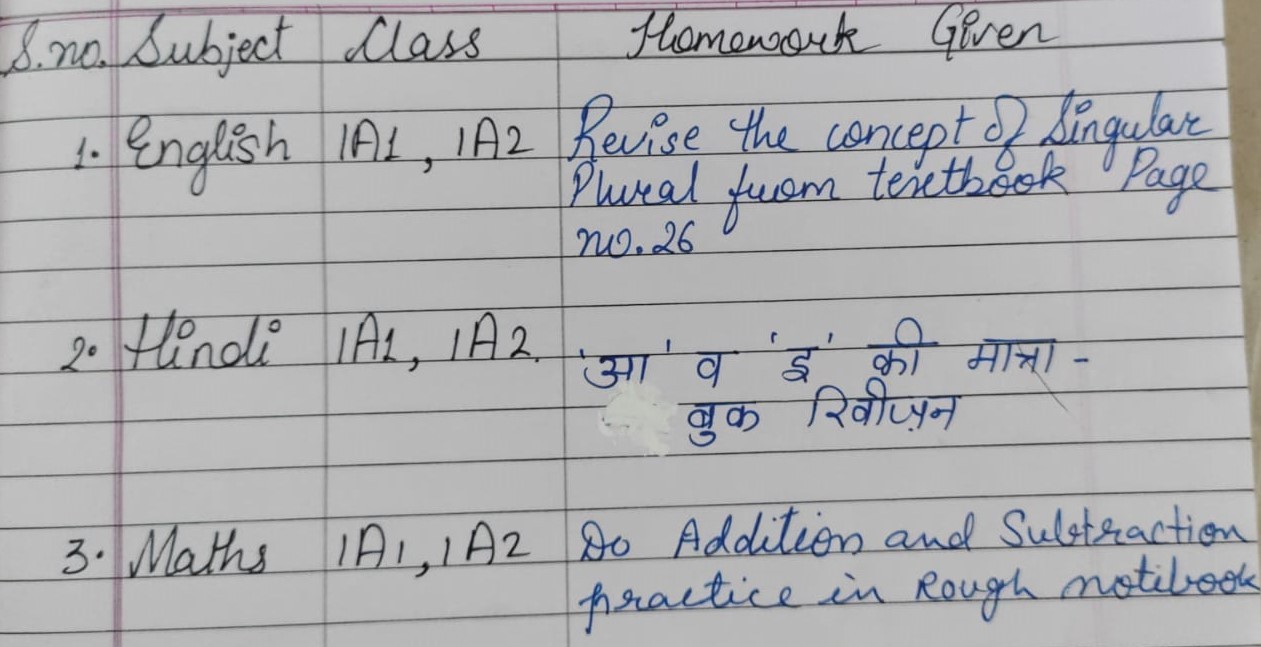 S.no. Subject Class Homework Given
1. English 1A1, 1A2 Revise the concept of Singular
Plural from textbook Page
no. 26
2. Hindi 1A1, 1A2. 'आ' व 'इ' की मात्रा -
बुक रिवीज़न
3. Maths 1A1, 1A2 Do Addition and Subtraction
practice in Rough notibook